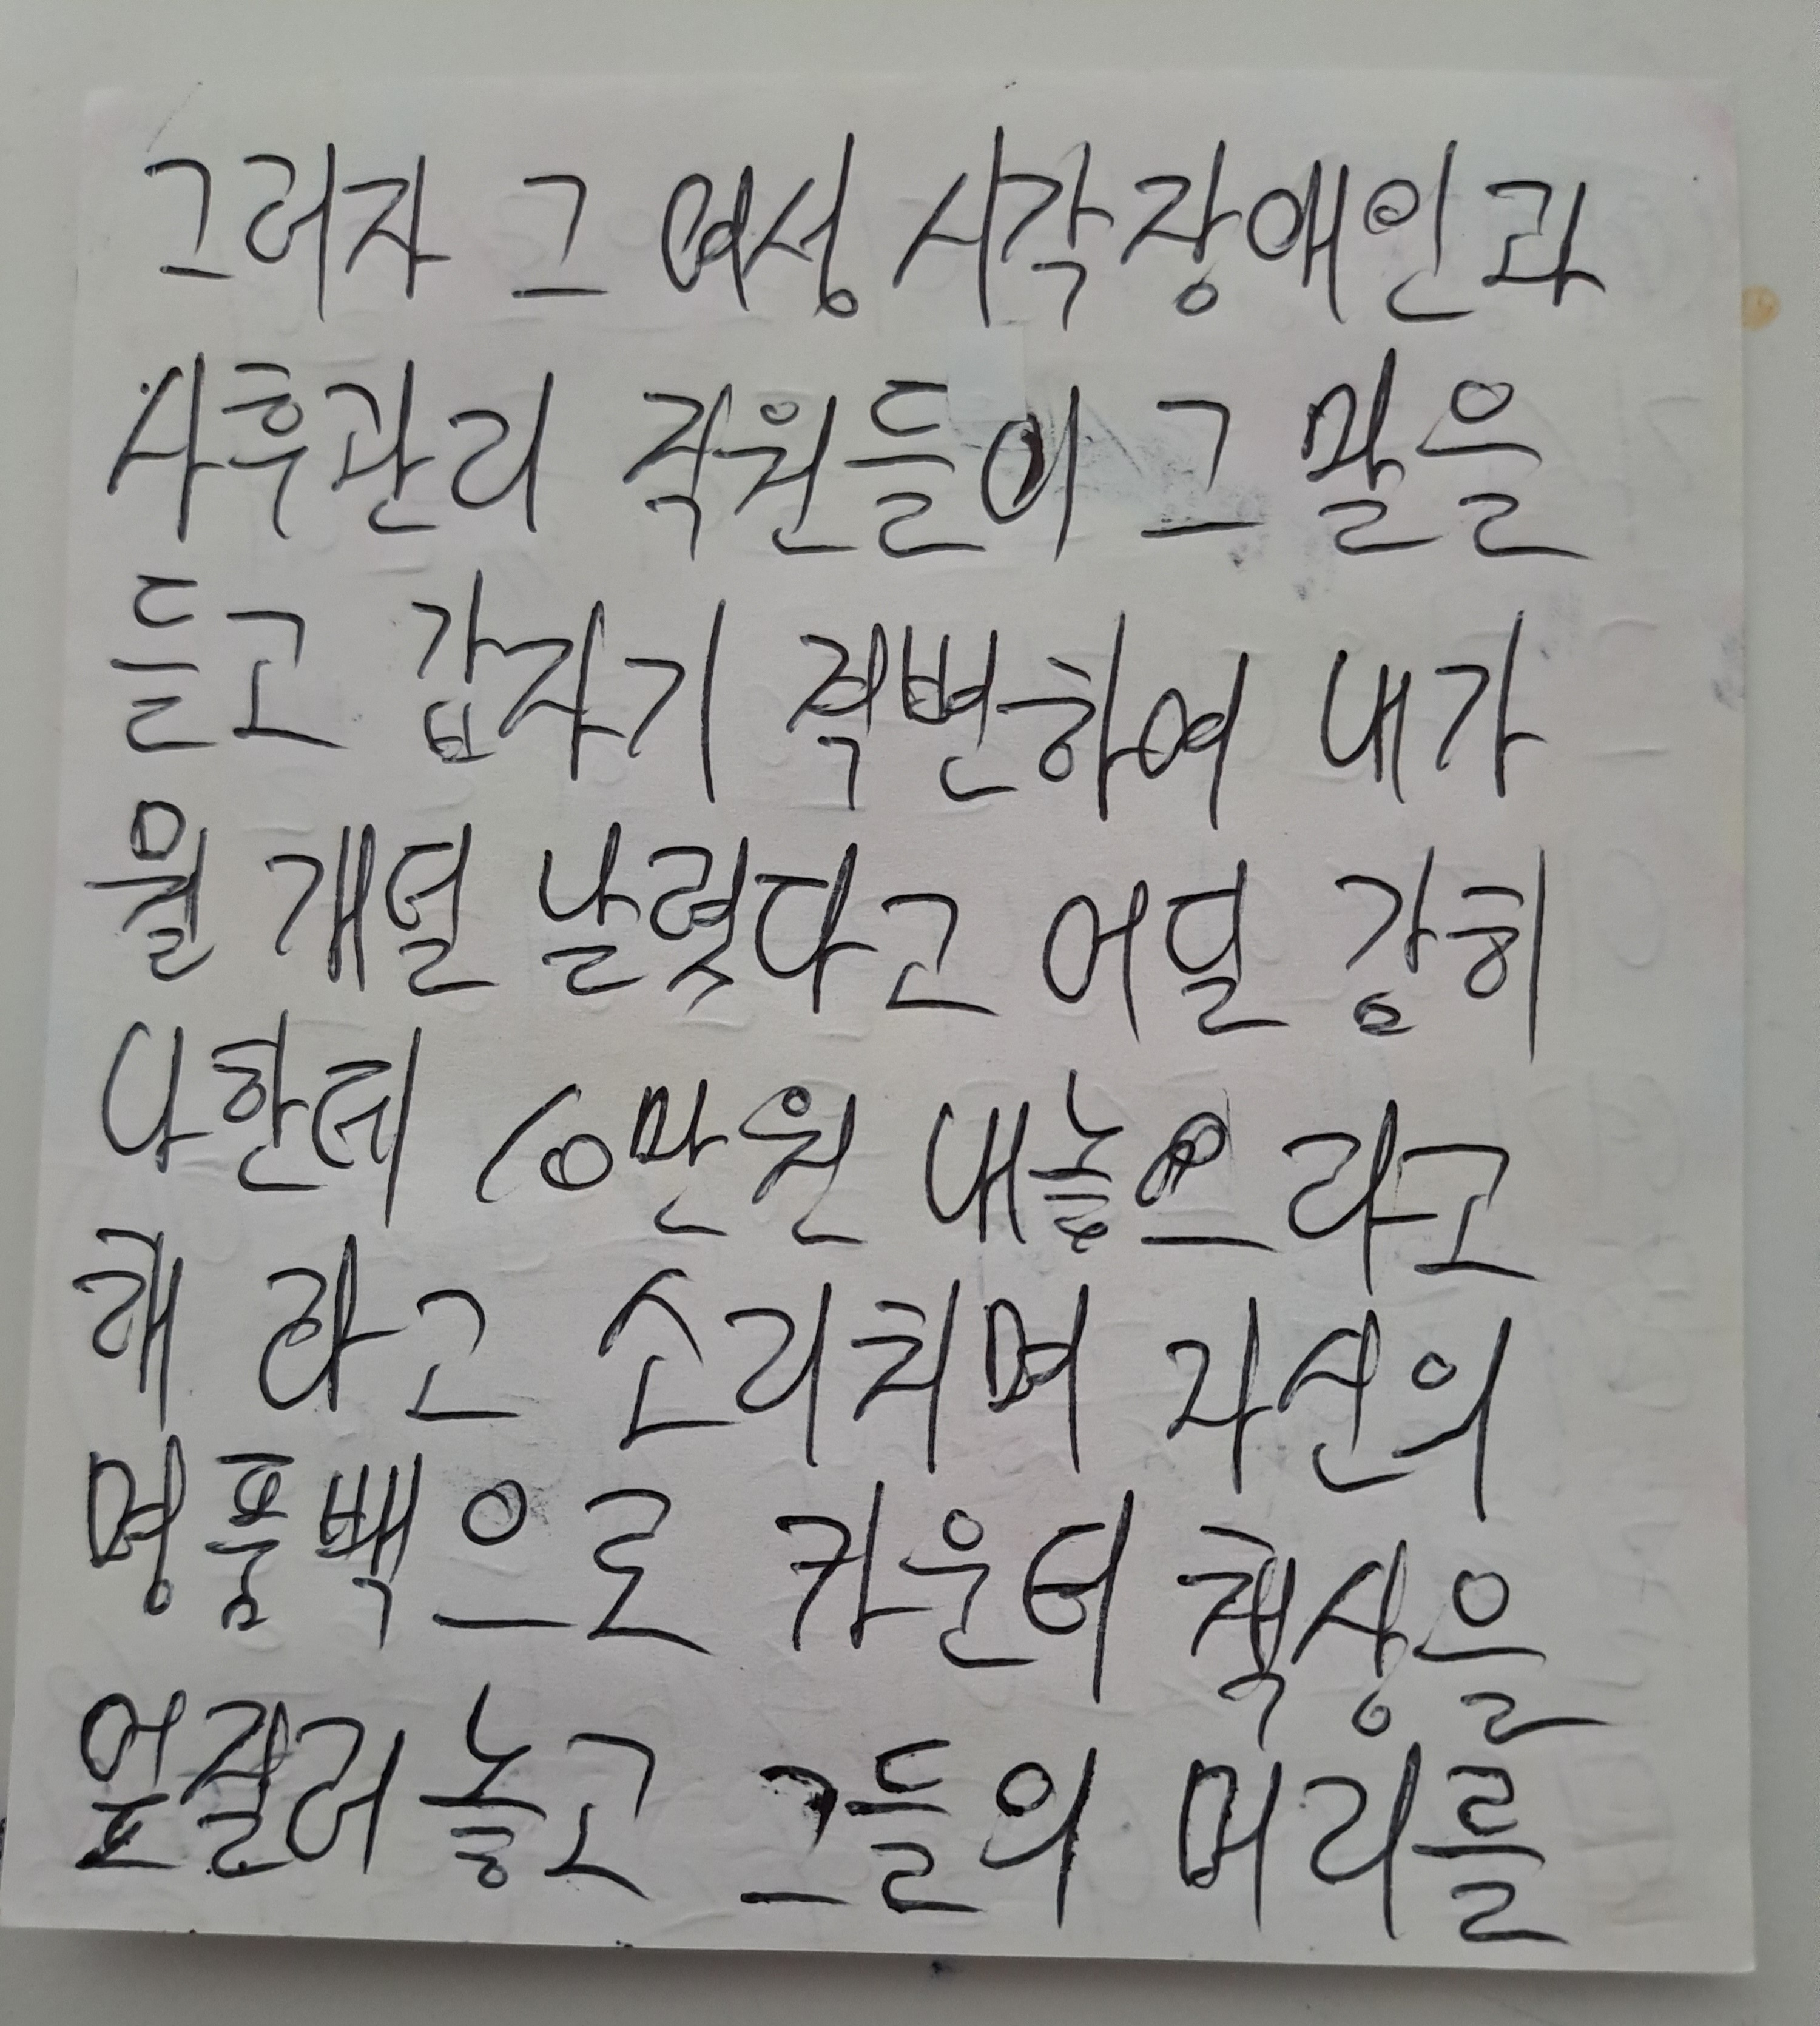 그러자 그 여성 시각장애인과
사후관리 직원들이 그 말을
듣고 갑자기 젹변하여 내가
뭘 개덜 날렷다고 어딜 감히
나한테 10만원 내놓으라고
해 하고 소리치며 자신의
명품백으로 카운터 책상을
엎질러 놓고 그들의 머리를